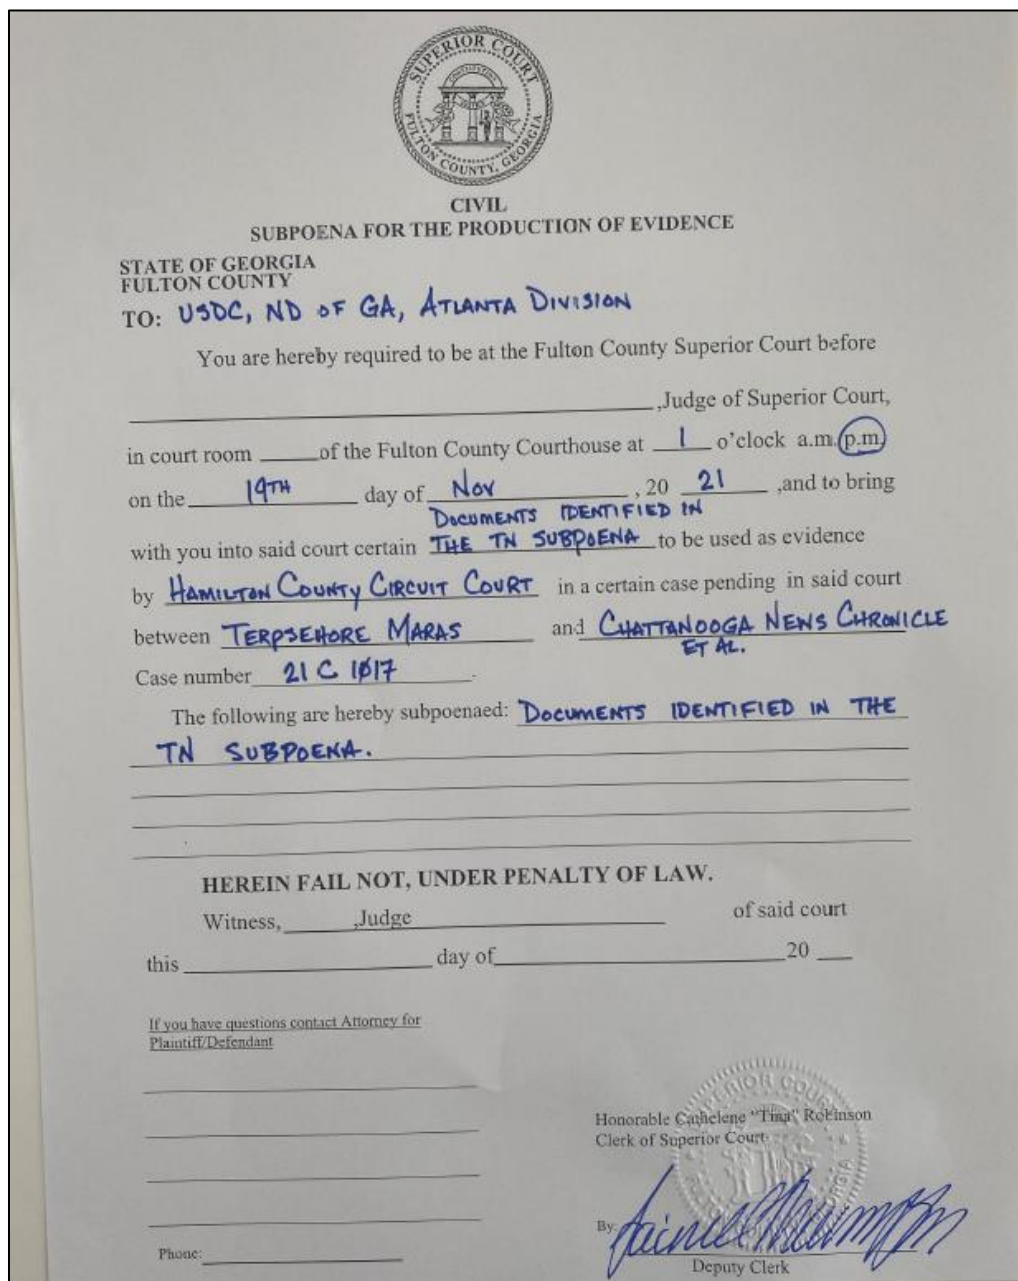 SUPERIOR COURT
CONSTITUTION
FULTON COUNTY, GEORGIA
CIVIL
SUBPOENA FOR THE PRODUCTION OF EVIDENCE
STATE OF GEORGIA
FULTON COUNTY
TO: USDC, ND OF GA, ATLANTA DIVISION
You are hereby required to be at the Fulton County Superior Court before
,Judge of Superior Court,
in court room of the Fulton County Courthouse at 1 o'clock a.m. p.m.
on the 19TH day of Nov , 20 21 ,and to bring
DOCUMENTS IDENTIFIED IN
with you into said court certain THE TN SUBPOENA to be used as evidence
by HAMILTON COUNTY CIRCUIT COURT in a certain case pending in said court
between TERPSEHORE MARAS and CHATTANOOGA NEWS CHRONICLE
ET AL.
Case number 21 C 1017
The following are hereby subpoenaed: DOCUMENTS IDENTIFIED IN THE
TN SUBPOENA.
HEREIN FAIL NOT, UNDER PENALTY OF LAW.
Witness, ,Judge of said court
this day of 20
If you have questions contact Attorney for
Plaintiff/Defendant
Honorable Cathelene "Tina" Robinson
Clerk of Superior Court
By:
Deputy Clerk
Phone: